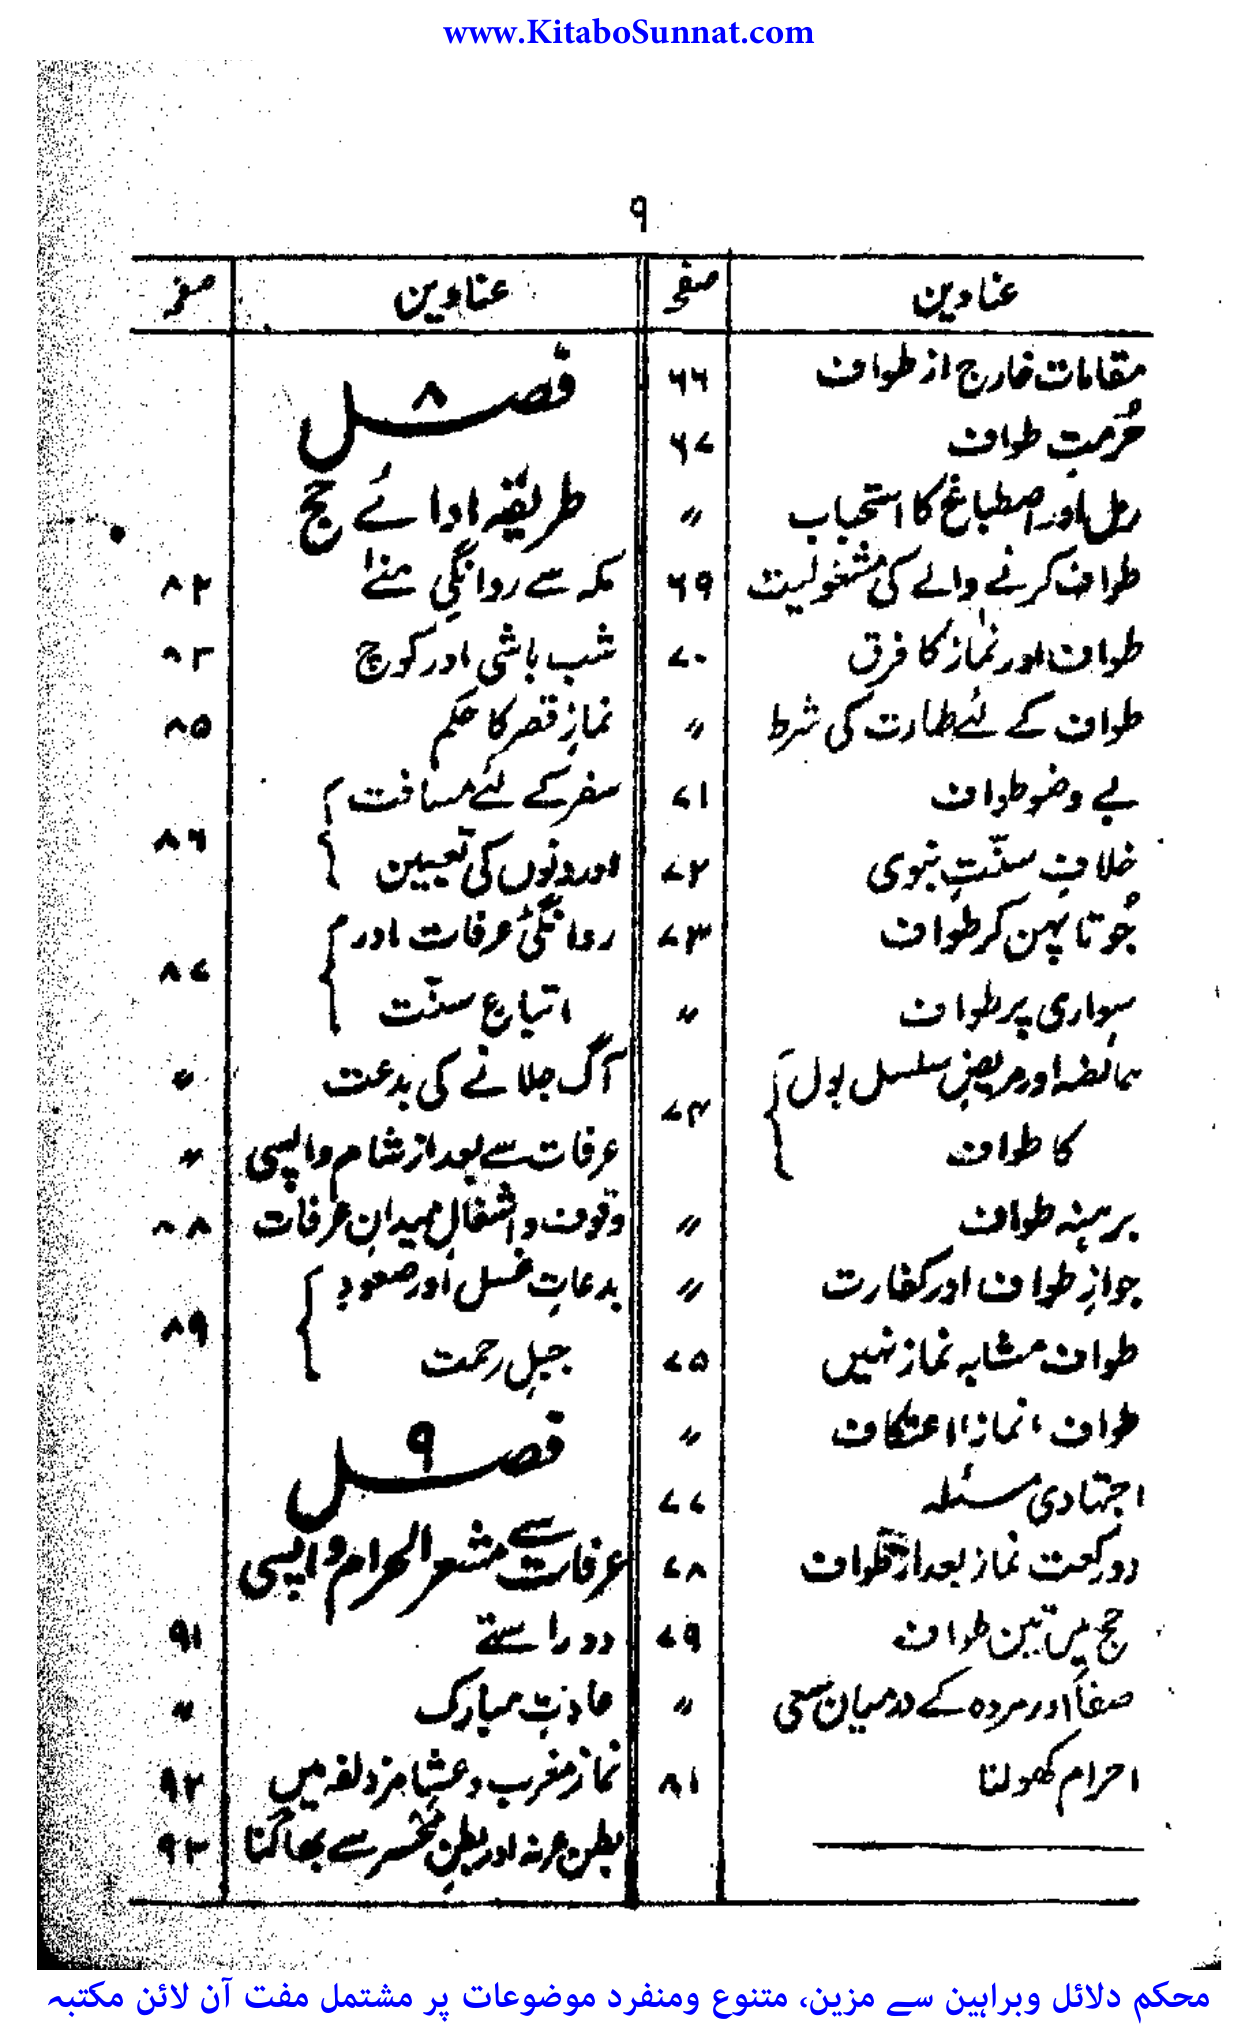 www.KitaboSunnat.com
۹
عناوین صفحہ
مقامات خارج از طواف ۶۶
حُرمتِ طواف ۶۷
رمل اور اصطباغ کا استحباب 〃
طواف کرنے والے کی مشغولیت ۶۹
طواف اور نماز کا فرق ۷۰
طواف کے لئے طہارت کی شرط 〃
بے وضو طواف ۷۱
خلافِ سنّتِ نبوی ۷۲
جُوتا پہن کر طواف ۷۳
سواری پر طواف 〃
حائضہ اور مریضِ سلسل بول
کا طواف ۷۴
برہنہ طواف 〃
جوازِ طواف اور کفارت 〃
طواف مشابہ نماز نہیں ۷۵
طواف، نماز، اعتکاف 〃
اجتہادی مسئلہ ۷۷
دو رکعت نماز بعد از طواف ۷۸
حج میں تین طواف ۷۹
صفا اور مروہ کے درمیان سعی 〃
احرام کھولنا ۸۱
عناوین صفحہ
فصل ۸
طریقۂ ادائے حج
مکہ سے روانگیِ منےٰ ۸۲
شب باشی اور کوچ ۸۳
نمازِ قصر کا حکم ۸۵
سفر کے لئے مسافت
اور دنوں کی تعیین ۸۶
روانگیٔ عرفات اور
اتباع سنّت ۸۷
آگ جلانے کی بدعت 〃
عرفات سے بعد از شام واپسی 〃
وقوف و اشغالِ میدانِ عرفات ۸۸
بدعاتِ غسل اور صعودِ
جبلِ رحمت ۸۹
فصل ۹
عرفات سے مشعر الحرام واپسی
دو راستے ۹۱
عادتِ مبارک 〃
نماز مغرب و عشا مزدلفہ میں ۹۲
بطن عرنہ اور بطنِ محسّر سے بھاگنا ۹۳
محکم دلائل وبراہین سے مزین، متنوع ومنفرد موضوعات پر مشتمل مفت آن لائن مکتبہ